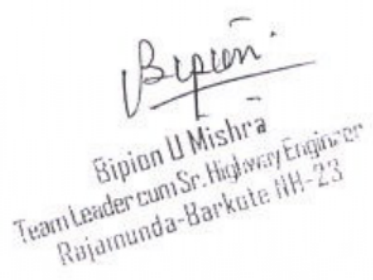 Bipion.
Bipion U Mishra
Team Leader cum Sr. Highway Engineer
Rajamunda-Barkote NH-23